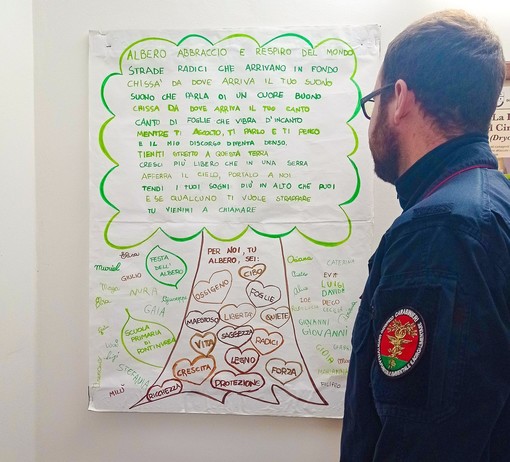 ALBERO ABBRACCIO E RESPIRO DEL MONDO
STRADE RADICI CHE ARRIVANO IN FONDO
CHISSÀ DA DOVE ARRIVA IL TUO SUONO
SUONO CHE PARLA DI UN CUORE BUONO
CHISSÀ DA DOVE ARRIVA IL TUO CANTO
CANTO DI FOGLIE CHE VIBRA D'INCANTO
MENTRE TI ASCOLTO, TI PARLO E TI PENSO
E IL MIO DISCORSO DIVENTA DENSO.
TIENITI STRETTO A QUESTA TERRA
CRESCI PIÙ LIBERO CHE IN UNA SERRA
AFFERRA IL CIELO, PORTALO A NOI
TENDI I TUOI SOGNI PIÙ IN ALTO CHE PUOI
E SE QUALCUNO TI VUOLE STRAPPARE
TU VIENIMI A CHIAMARE
PER NOI, TU
ALBERO, SEI:
CIBO
OSSIGENO
FOGLIE
MAESTOSO
LIBERTÀ
QUIETE
SAGGEZZA
VITA
RADICI
LEGNO
CRESCITA
FORZA
PROTEZIONE
RICCHEZZA
FESTA
DELL'
ALBERO
SCUOLA
PRIMARIA
DI
PONTINUREA
Muriel
GIULIO
NURA
GAIA
Giuseppe
STEFANIA
MILÙ
CATERINA
EVA
LUIGI
DAVIDE
ZOE
DECO
GIOVANNI
GIOVANNI
CARABINIERI